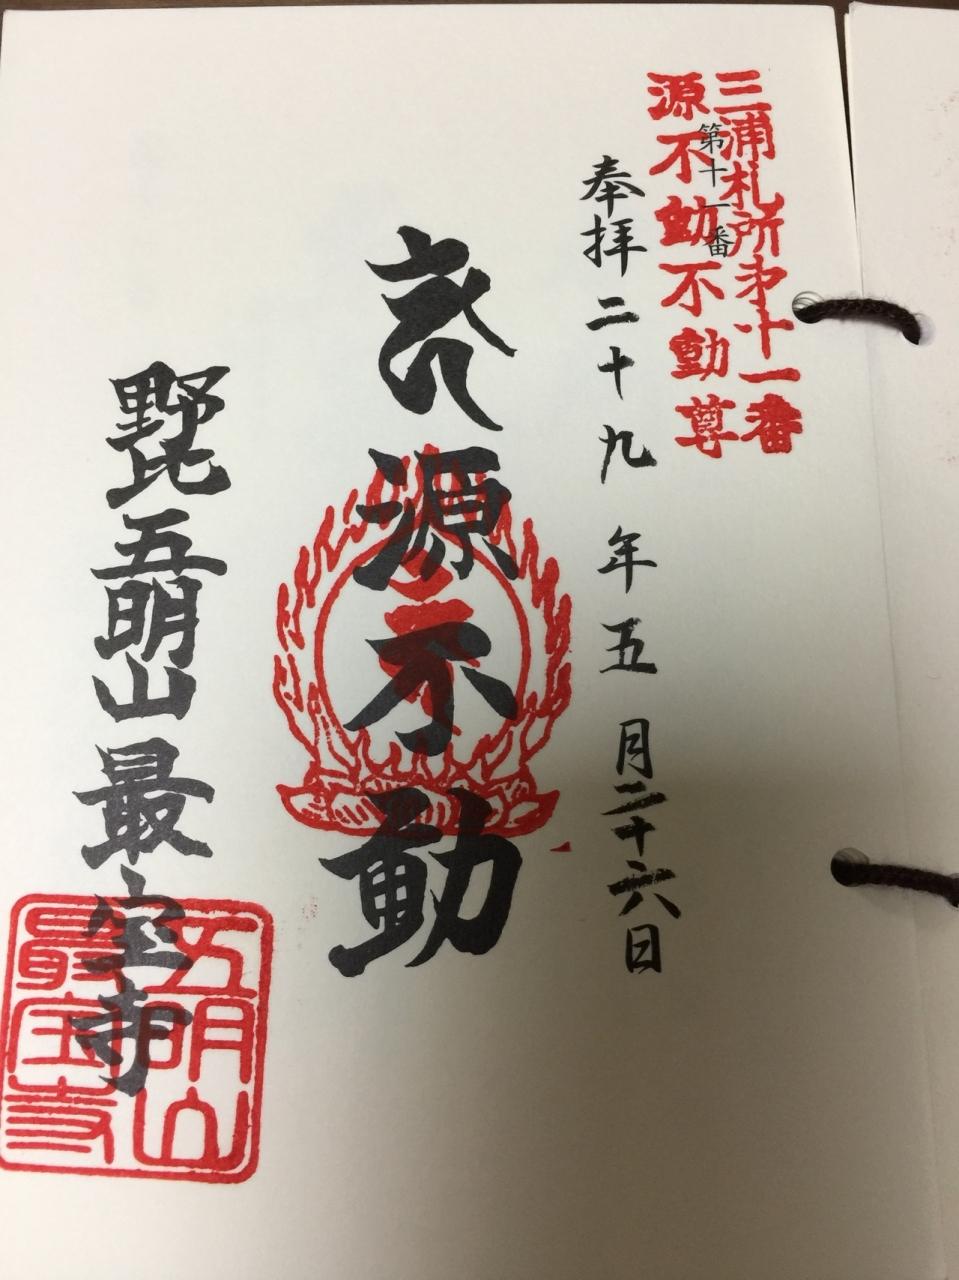 三浦札所第十一番
源不動不動尊
第十一番
奉拝二十九年五月二十六日
源不動
野比五明山最宝寺
五明山
最宝寺